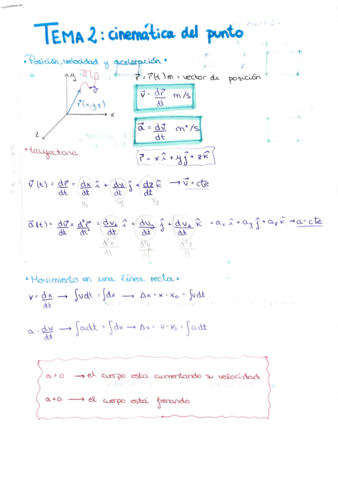 TEMA 2: cinemática del punto
· Posición, velocidad y aceleración ·
y
r⃗ = r⃗(t) m = vector de posición
r⃗(x,y,z)
v⃗ = dr⃗/dt m/s
x
z
a⃗ = dv⃗/dt m²/s
· trayectoria
r⃗ = x î + y ĵ + z k̂
v⃗(t) = dr⃗/dt = dx/dt î + dy/dt ĵ + dz/dt k̂ → v⃗ = cte
vx vy vz
a⃗(t) = dv⃗/dt = d²r⃗/dt² = dvx/dt î + dvy/dt ĵ + dvz/dt k̂ = ax î + ay ĵ + az k̂ → a = cte
d²x/dt² d²y/dt² d²z/dt²
· Movimiento en una línea recta ·
v = dx/dt → ∫vdt = ∫dx → Δx = x - x₀ = ∫vdt
a = dv/dt → ∫adt = ∫dv → Δv = v - v₀ = ∫adt
a>0 → el cuerpo está aumentando su velocidad
a<0 → el cuerpo está frenando